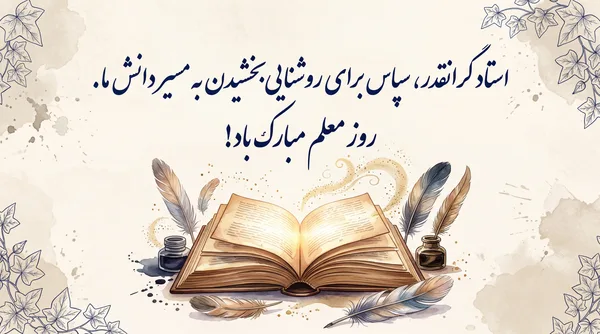 استاد گرانقدر، سپاس برای روشنایی بخشیدن به مسیر دانش ما.
روز معلم مبارک باد!